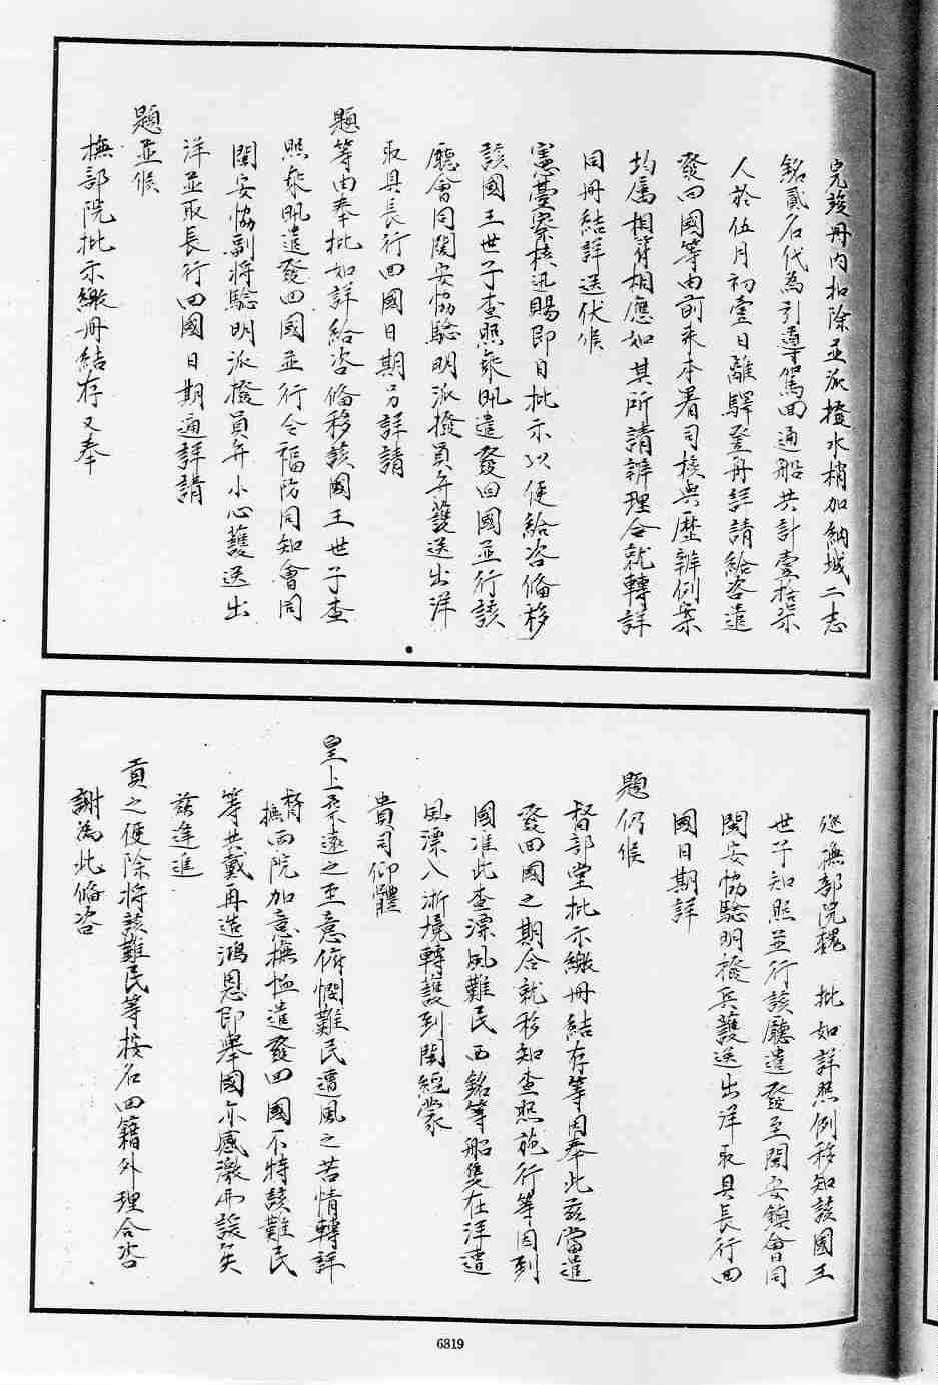 完竣册内扣除並派撥水梢加納城二志
銘貳名代為引導駕回通船共計壹拾柒
人於伍月初壹日離驛登舟詳請給咨遣
發回國等由前來本署司核與歷辦例案
均屬相符相應如其所請辦理合就轉詳
同册結詳送伏候
憲臺察核迅賜即日批示以便給咨偹移
該國王世子查照乘帆遣發回國並行該
廳會同閩安協驗明派撥員弁護送出洋
取具長行回國日期另詳請
題等由奉批如詳給咨偹移該國王世子查
照乘帆遣發回國並行令福防同知會同
閩安協副將驗明派撥員弁小心護送出
洋並取長行回國日期適詳請
題並候
撫部院批示繳册結存又奉
巡撫部院魏 批如詳照例移知該國王
世子知照並行該廳遣發至閩安鎮會同
閩安協驗明撥兵護送出洋取具長行回
國日期詳
題仍候
督部堂批示繳册結存等因奉此茲當遣
發回國之期合就移知查照施行等因到
國准此查漂風難民西銘等船隻在洋遭
風漂入浙境轉護到閩經蒙
貴司仰體
皇上柔遠之至意俯憫難民遭風之苦情轉詳
督撫兩院加意撫恤遣發回國不特該難民
等共戴再造鴻恩即舉國亦感激無諼矣
茲逢進
貢之便除將該難民等按名回籍外理合咨
謝為此偹咨
6819